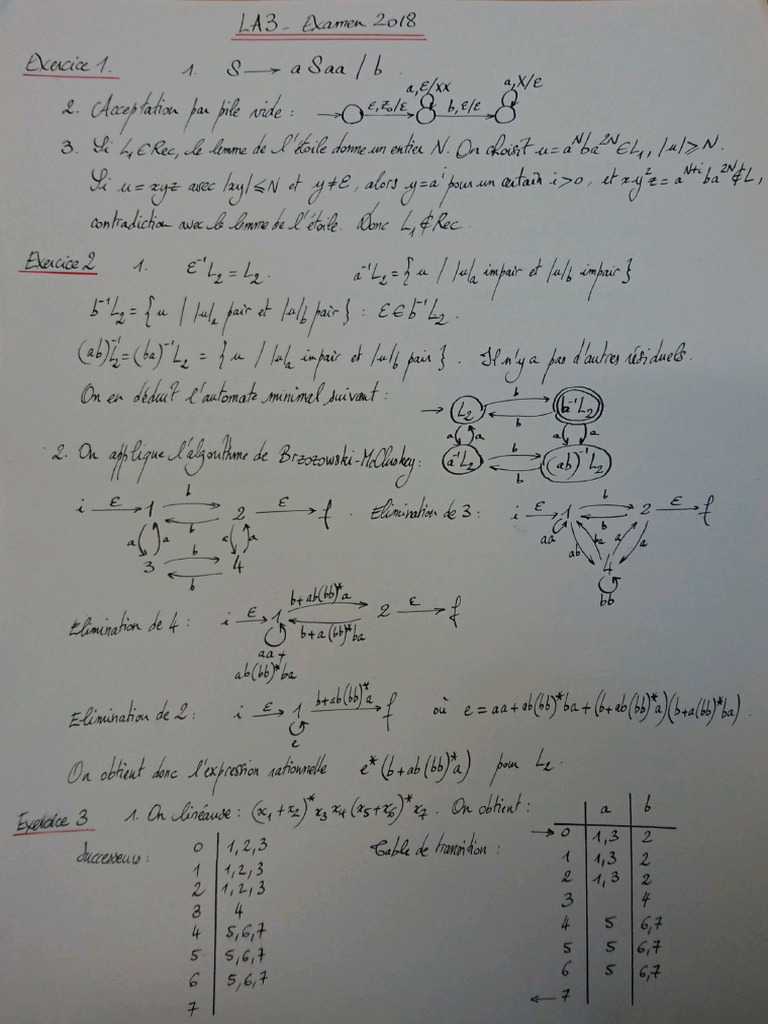 LA3 - Examen 2018
Exercice 1. 1. S → a S a a / b .
2. (Acceptation par pile vide : ε, Z₀/ε a, ε/XX b, ε/ε a, X/ε
3. Si L₁ ∈ Rec, le lemme de l'étoile donne un entier N. On choisit u = aᴺba²ᴺ ∈ L₁, |u| ≥ N.
Si u = xyz avec |xy| ≤ N et y ≠ ε, alors y = aⁱ pour un certain i > 0, et xy²z = aᴺ⁺ⁱba²ᴺ ∉ L,
contradiction avec le lemme de l'étoile. Donc L₁ ∉ Rec.
Exercice 2 1. ε⁻¹L₂ = L₂. a⁻¹L₂ = { u / |u|ₐ impair et |u|b impair }
b⁻¹L₂ = { u / |u|ₐ pair et |u|b pair } : ε ∈ b⁻¹L₂.
(ab)⁻¹L₂ = (ba)⁻¹L₂ = { u / |u|ₐ impair et |u|b pair }. Il n'y a pas d'autres résiduels.
On en déduit l'automate minimal suivant :
→ L₂ b b b⁻¹L₂
a a a a
a⁻¹L₂ b b (ab)⁻¹L₂
2. On applique l'algorithme de Brzozowski-McCluskey :
i ε 1 b b 2 ε f . Elimination de 3 : i ε 1 b b 2 ε f
a a a a aa ab ba a a
3 b b 4 4 bb
Elimination de 4 : i ε 1 b+ab(bb)*a b+a(bb)*ba 2 ε f
aa +
ab(bb)*ba
Elimination de 2 : i ε 1 b+ab(bb)*a f où e = aa+ab(bb)*ba+(b+ab(bb)*a)(b+a(bb)*ba).
e
On obtient donc l'expression rationnelle e*(b+ab(bb)*a) pour L₂.
Exercice 3 1. On linéarise : (x₁+x₂)*x₃x₄(x₅+x₆)*x₇. On obtient :
Successeurs : Table de transition :
0 1,2,3
1 1,2,3
2 1,2,3
3 4
4 5,6,7
5 5,6,7
6 5,6,7
7
a b
→ 0 1,3 2
1 1,3 2
2 1,3 2
3 4
4 5 6,7
5 5 6,7
6 5 6,7
← 7